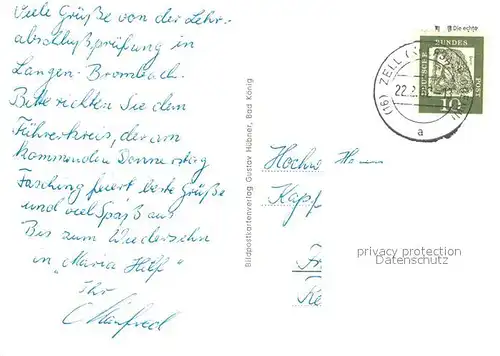 Viele Grüße von der Lehr-
abschlußprüfung in
Langen-Brombach.
Bitte richten Sie dem
Führerkreis, der am
kommenden Donnerstag
Fasching feiert beste Grüße
und viel Spaß aus
Bis zum Wiedersehn
in "Maria Hilf"
Ihr
Manfred
Bildpostkartenverlag Gustav Hübner, Bad König
Die echte
DEUTSCHE
BUNDES
POST
10
(16) ZELL
22.2.
a
Hochw Herrn
Kapl
Fr
Ke
privacy protection
Datenschutz